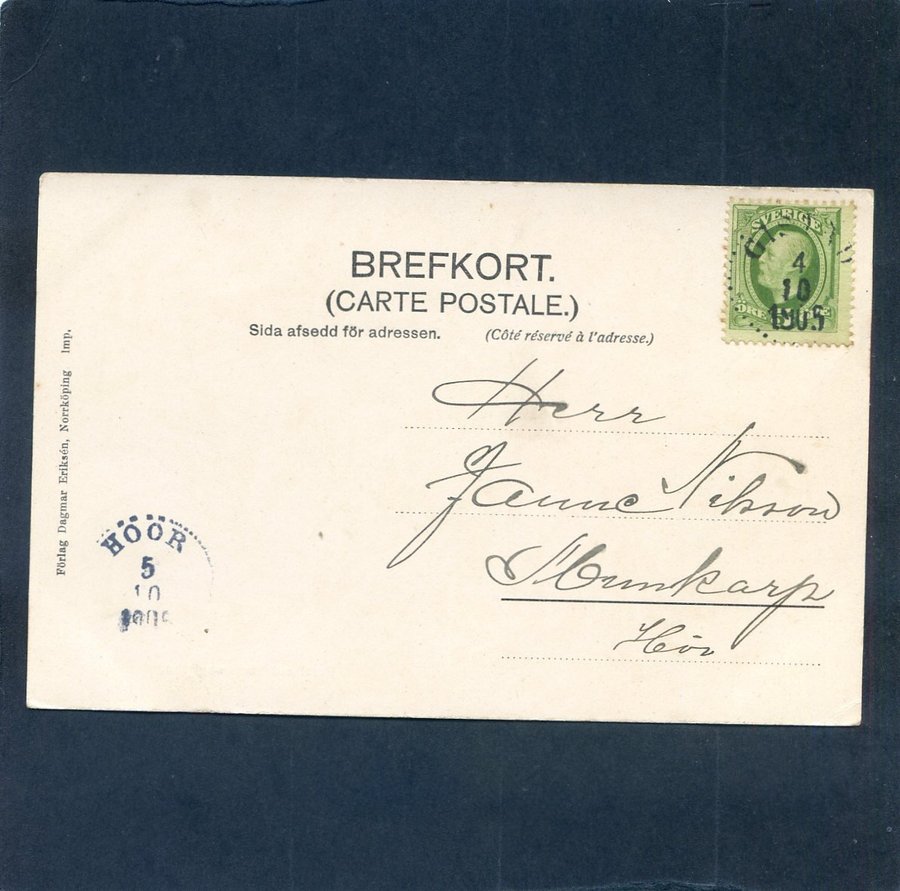 BREFKORT.
(CARTE POSTALE.)
Sida afsedd för adressen. (Côté réservé à l'adresse.)
SVERIGE
4
10
1905
ÖRE
Herr
Janne Nilsson
Munkarp
Höör
Förlag Dagmar Eriksén, Norrköping Imp.
HÖÖR
5
10